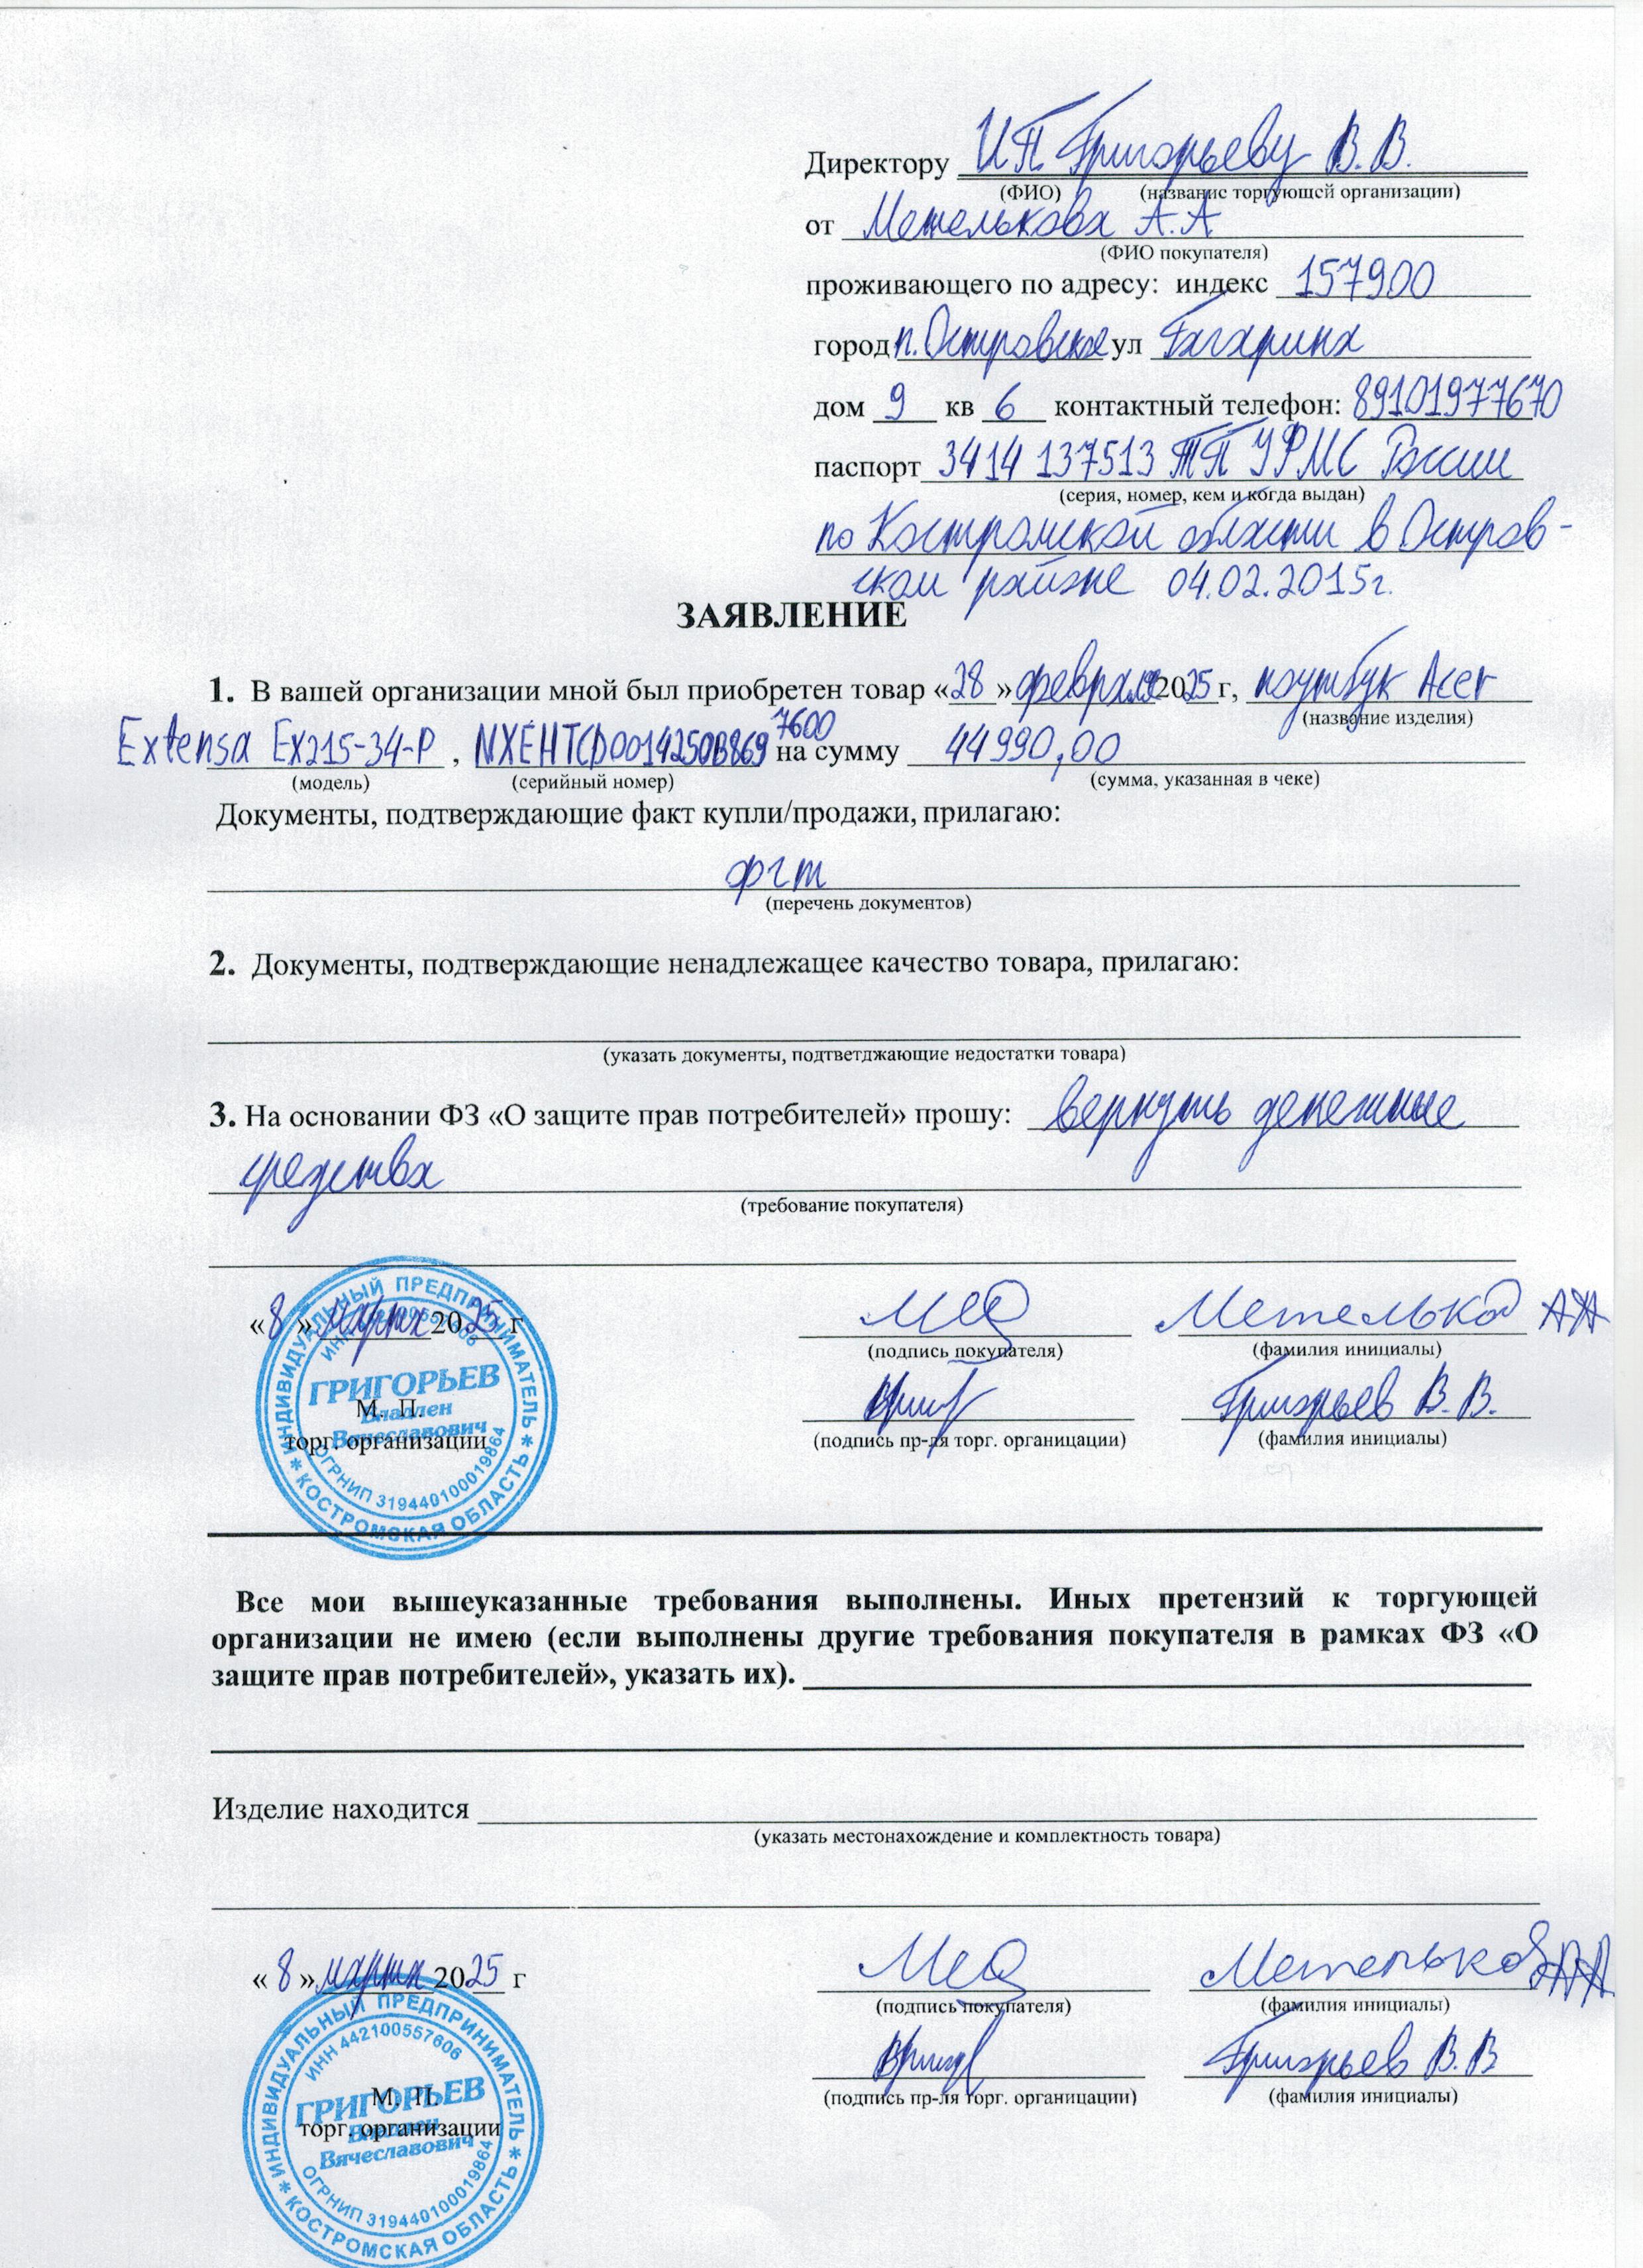 Директору ИП Григорьеву В.В.
(ФИО) (название торгующей организации)
от Метелькова А.А
(ФИО покупателя)
проживающего по адресу: индекс 157900
город п. Островское ул Гагарина
дом 9 кв 6 контактный телефон: 89101977670
паспорт 3414 137513 ТП УФМС России
(серия, номер, кем и когда выдан)
по Костромской области в Остров-
ском районе 04.02.2015г.
ЗАЯВЛЕНИЕ
1. В вашей организации мной был приобретен товар «28» февраля 2025 г, ноутбук Acer
(название изделия)
7600
Extensa EX215-34-P, NXEHTCD0014250B869 на сумму 44990,00
(модель) (серийный номер) (сумма, указанная в чеке)
Документы, подтверждающие факт купли/продажи, прилагаю:
фгт
(перечень документов)
2. Документы, подтверждающие ненадлежащее качество товара, прилагаю:
(указать документы, подтветджающие недостатки товара)
3. На основании ФЗ «О защите прав потребителей» прошу: вернуть денежные
средства
(требование покупателя)
«8» марта 2025 г Метельков АА
(подпись покупателя) (фамилия инициалы)
Григорьев В.В.
(подпись пр-ля торг. органицации) (фамилия инициалы)
М. П.
торг. организации
ИНДИВИДУАЛЬНЫЙ ПРЕДПРИНИМАТЕЛЬ
ГРИГОРЬЕВ
Владлен
Вячеславович
ОГРНИП 319440100019864
* КОСТРОМСКАЯ ОБЛАСТЬ *
Все мои вышеуказанные требования выполнены. Иных претензий к торгующей
организации не имею (если выполнены другие требования покупателя в рамках ФЗ «О
защите прав потребителей», указать их).
Изделие находится
(указать местонахождение и комплектность товара)
«8» марта 2025 г Метельков АА
(подпись покупателя) (фамилия инициалы)
Григорьев В.В
(подпись пр-ля торг. органицации) (фамилия инициалы)
М. П.
торг. организации
ИНДИВИДУАЛЬНЫЙ ПРЕДПРИНИМАТЕЛЬ
ИНН 442100557606
ГРИГОРЬЕВ
Владлен
Вячеславович
ОГРНИП 319440100019864
* КОСТРОМСКАЯ ОБЛАСТЬ *